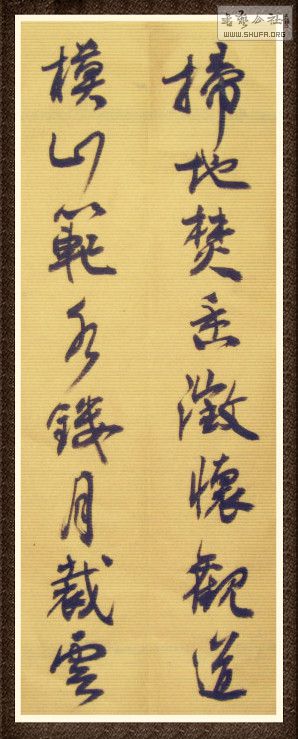 掃地焚香澂懷觀道
模山範水鏤月裁雲
書藝公社
WWW.SHUFA.ORG